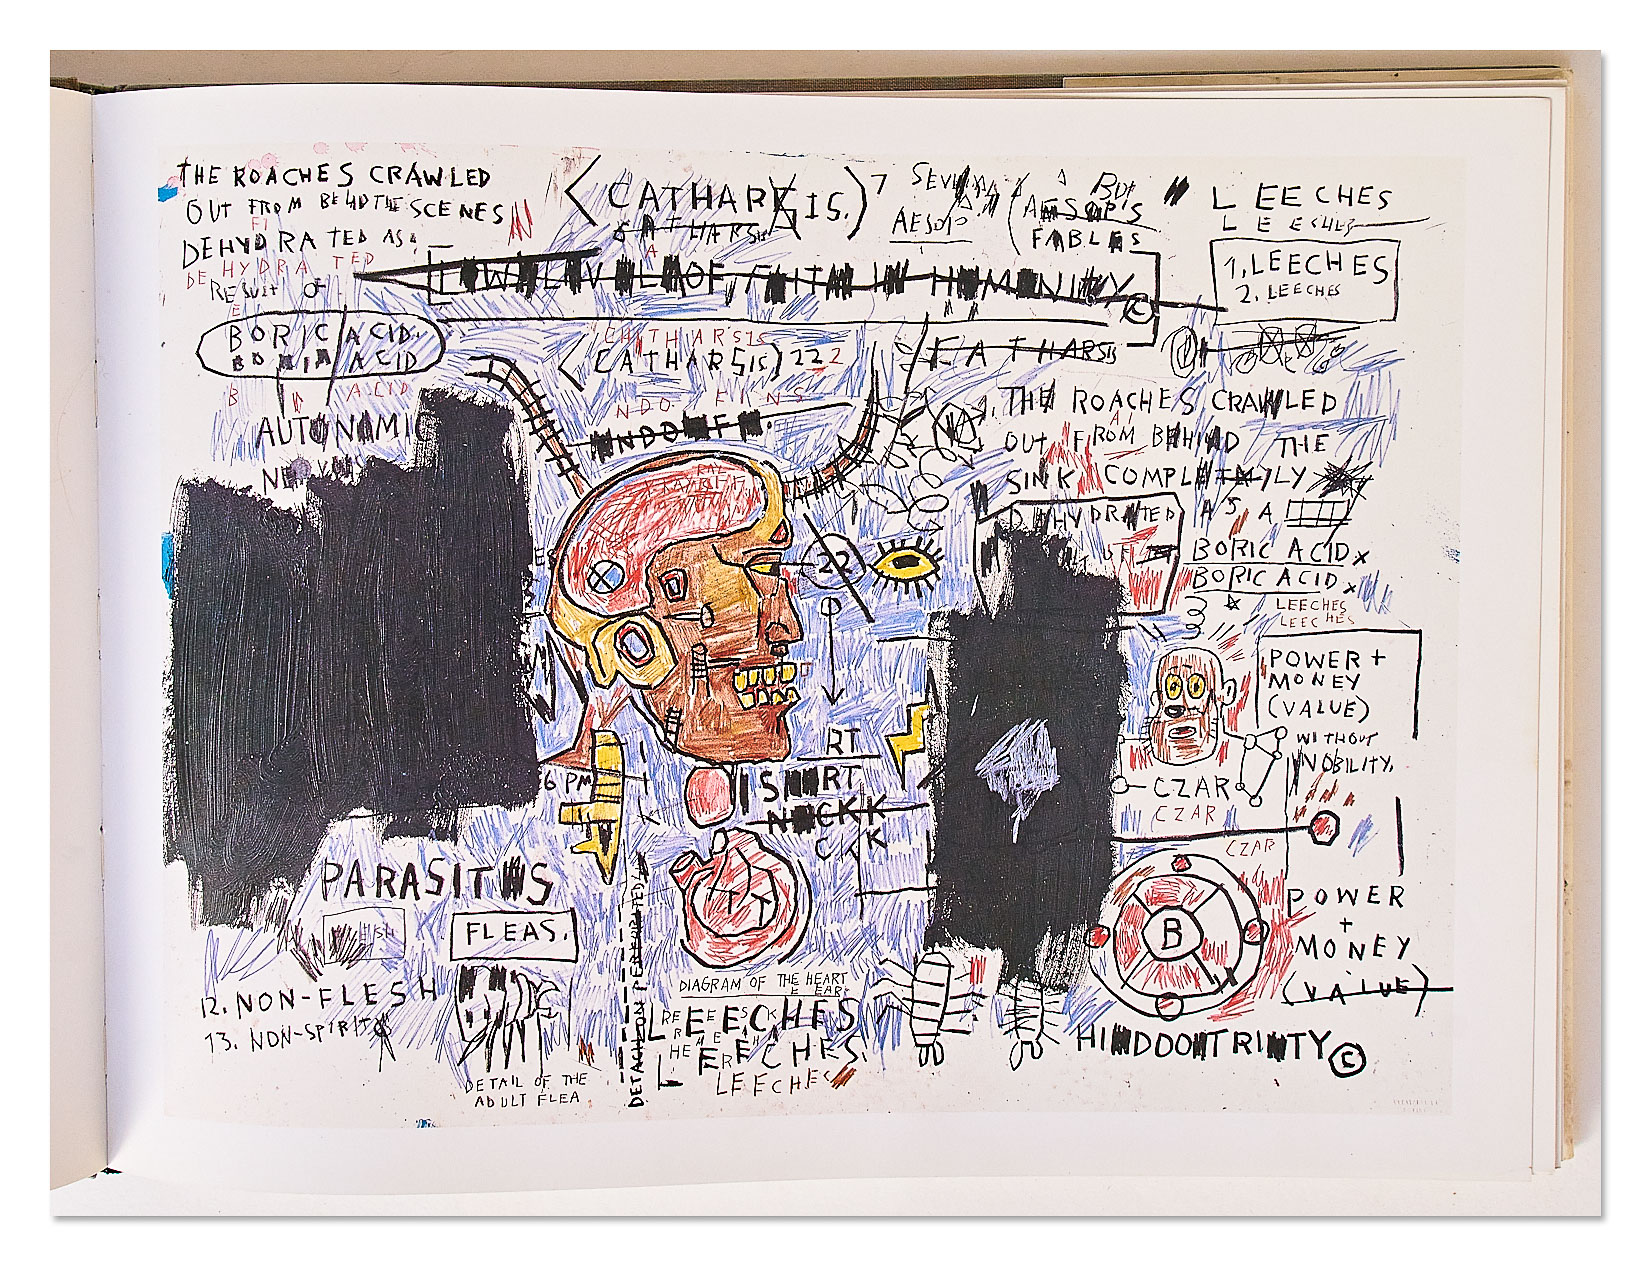 THE ROACHES CRAWLED
OUT FROM BEHIND THE SCENES
DEHYDRATED AS A
DEHYDRATED
RESULT OF
BORIC ACID.
BORIC ACID
B ACID
AUTONAMIC
<CATHARSIS.)7
CATHARSIS
AESOP
(AESOP'S
FABLES
LOW LEVEL OF FAITH IN HUMANITY ©
CATHARSIS
<CATHARSIS) 222
FATHARSIS
LEECHES
LEECHES
1. LEECHES
2. LEECHES
THE ROACHES CRAWLED
OUT FROM BEHIND THE
SINK COMPLETELY
DEHYDRATED AS A
BORIC ACID x
BORIC ACID x
LEECHES
LEECHES
22
POWER +
MONEY
(VALUE)
WITHOUT
NOBILITY.
CZAR
CZAR
CZAR
6 PM
RT
SHORT
NOCKK
CKK
PARASITES
FLEAS.
12. NON-FLESH
13. NON-SPIRITS
DETAIL OF THE
ADULT FLEA
DETACH ON PERFORATED
DIAGRAM OF THE HEART
LEECHES
LEECHES
LEECHES
B
POWER
+
MONEY
(VALUE)
HINDOO TRINITY ©